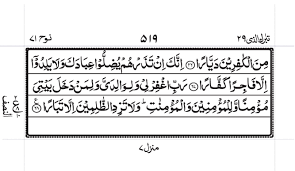 تبٰرك الذى ٢٩
٥١٩
نوح ٧١
مِنَ الْكٰفِرِيْنَ دَيَّارًا ﴿٢٦﴾ اِنَّكَ اِنْ تَذَرْهُمْ يُضِلُّوْا عِبَادَكَ وَلَا يَلِدُوْۤا
اِلَّا فَاجِرًا كَفَّارًا ﴿٢٧﴾ رَبِّ اغْفِرْ لِيْ وَلِوَالِدَيَّ وَلِمَنْ دَخَلَ بَيْتِيَ
مُؤْمِنًا وَّلِلْمُؤْمِنِيْنَ وَالْمُؤْمِنٰتِ ؕ وَلَا تَزِدِ الظّٰلِمِيْنَ اِلَّا تَبَارًا ﴿٢٨﴾
منزل ٧